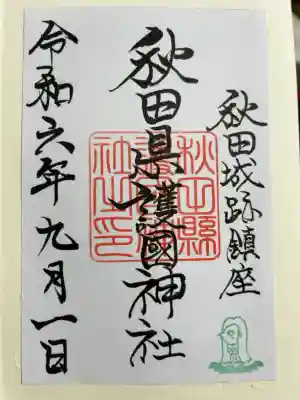 秋田城跡鎮座
秋田県護國神社
秋田縣護國神社之印
令和六年九月一日